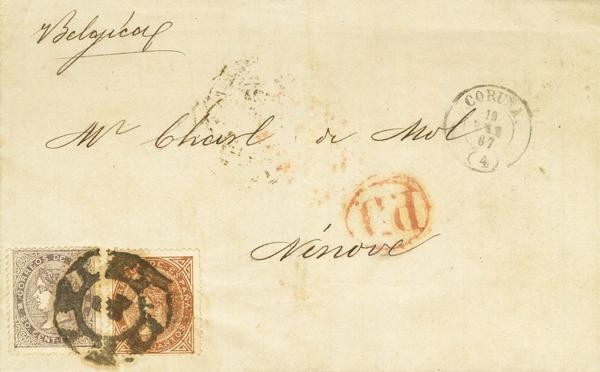 Belgica
Mr Charl de Mol
Ninove
CORUÑA
19
67
(4)
P.D.
CORREOS DE
20 CENT
ESPAÑA
CUARTOS